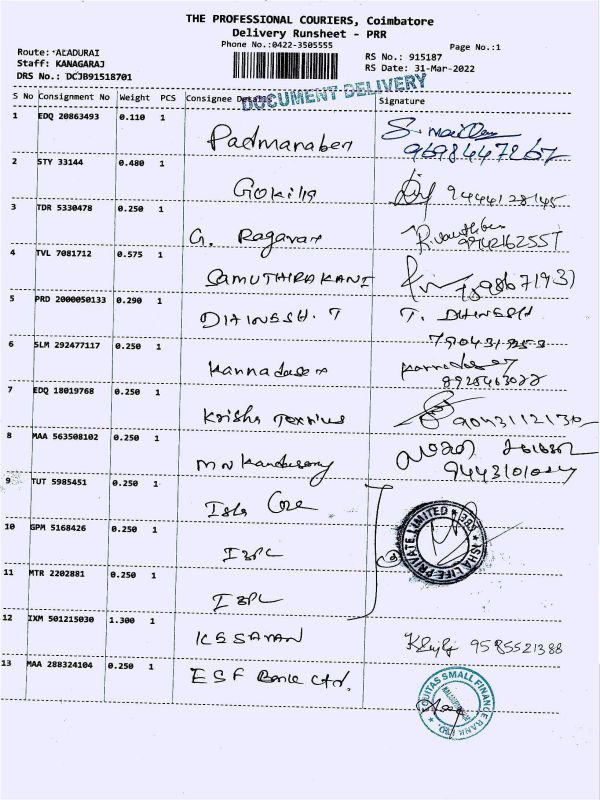 THE PROFESSIONAL COURIERS, Coimbatore
Delivery Runsheet - PRR
Phone No.:0422-3505555
Page No.:1
Route: ALADURAI
Staff: KANAGARAJ
DRS No.: DCJB91518701
RS No.: 915187
RS Date: 31-Mar-2022
DOCUMENT DELIVERY
S No Consignment No Weight PCS Consignee Details Signature
1 EDQ 20863493 0.110 1 Padmanaben
2 STY 33144 0.480 1 Gokila 9444128145
3 TDR 5330478 0.250 1 G. Ragavan
4 TVL 7081712 0.575 1 SAMUTHIRAKANI
5 PRD 2000050133 0.290 1 DHINESH. T T. DHINESH
6 SLM 292477117 0.250 1 Kannadasan
7 EDQ 18019768 0.250 1 9043112130
8 MAA 563508102 0.250 1 M N Kandasamy
9 TUT 5985451 0.250 1 Isha
10 GPM 5168426 0.250 1
11 MTR 2202881 0.250 1
ISHA LIFE PRIVATE LIMITED
12 IXM 501215030 1.300 1 KESAVAN 9585521388
13 MAA 288324104 0.250 1 ESF Bank Ltd.
EQUITAS SMALL FINANCE BANK LTD.